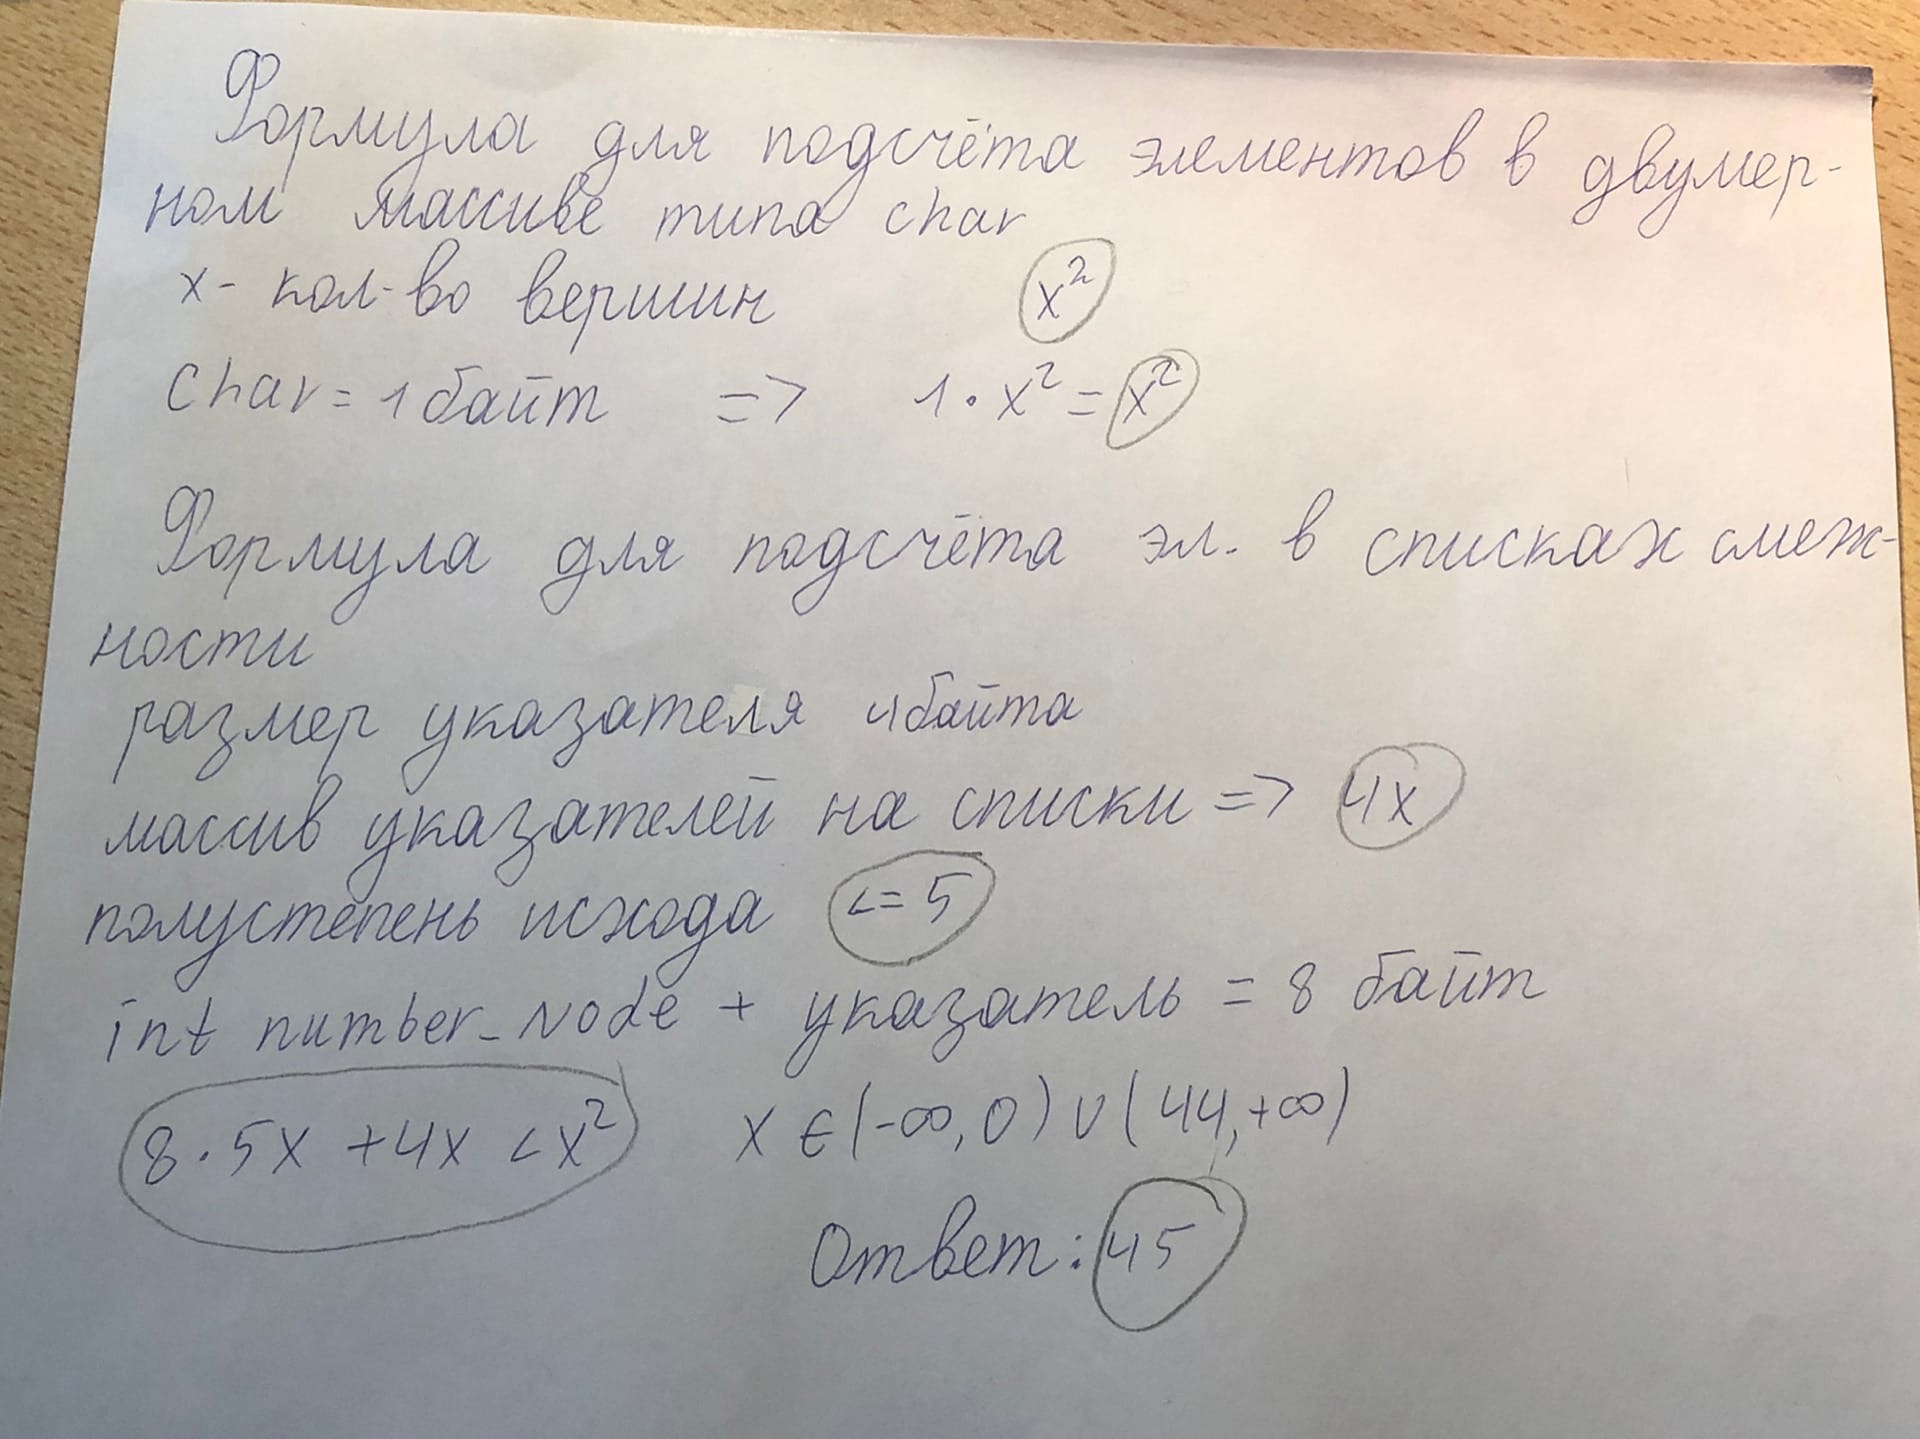 Формула для подсчёта элементов в двумер-
ном массиве типа char
x - кол-во вершин x²
char = 1 байт => 1 · x² = x²
Формула для подсчёта эл. в списках смеж-
ности
размер указателя 4 байта
массив указателей на списки => 4x
полустепень исхода <= 5
int number_Node + указатель = 8 байт
8 · 5x + 4x < x² x ∈ (-∞, 0) ∪ (44, +∞)
Ответ: 45